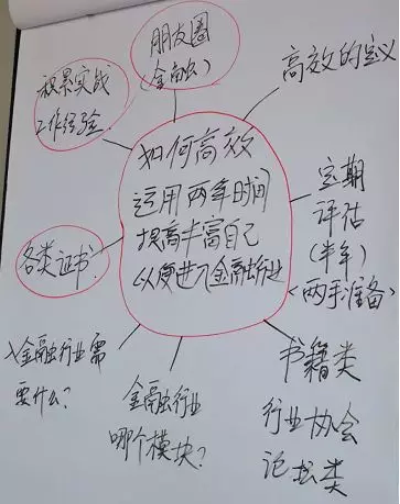 朋友圈
(金融)
高效的定义
积累实战
工作经验
如何高效
运用两年时间
提高丰富自己
以便进入金融行业
定期
评估
(半年)
<两手准备>
各类证书
入金融行业需
要什么?
金融行业
哪个模块?
书籍类
行业协会
论坛类